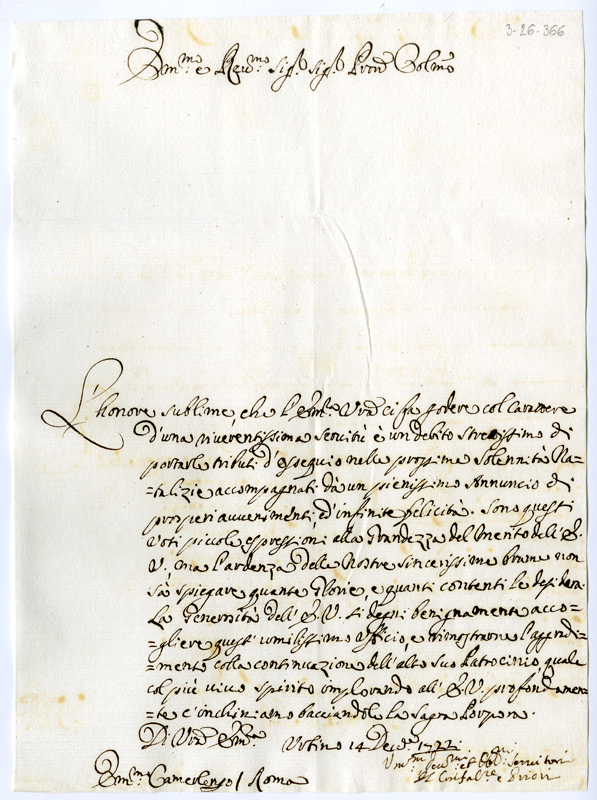 3-26-366
Em.mo e Rev.mo Sig.r Sig.r Pron Colmo
L'honore sublime, che l'Em.a Vra ci fa godere col Carattere
d'una riverentissima servitù è un debito strettissimo di
portarle tributi d'ossequio nelle prossime Solennità Na=
=talizie accompagnati dà un pienissimo Annuncio di
prosperi avvenimenti, ed infinite felicità. Sono questi
voti piccole espressioni alla Grandezza del Merito dell'E.
V., ma l'ardenza delle Nostre sincerissime brame non
sà spiegare quante Glorie, e quanti contenti le desidera.
La Generosità dell'E.V. si degni benignamente acco=
=gliere quest'umilissimo Ufficio, e rimostrarne l'aggradi=
=mento colla continuazione dell'alto suo Patrocinio, quale
col più vivo spirito implorando all'E.V. profondamen=
=te c'inchiniamo bacciandole la Sagra Porpora.
Di Vra Em.a Urbino 14 Dec.e 1722
Um.mi Dev.mi et Obb.mi Servitori
Il Confal.re e Priori
Em.mo Camerlengo / Roma